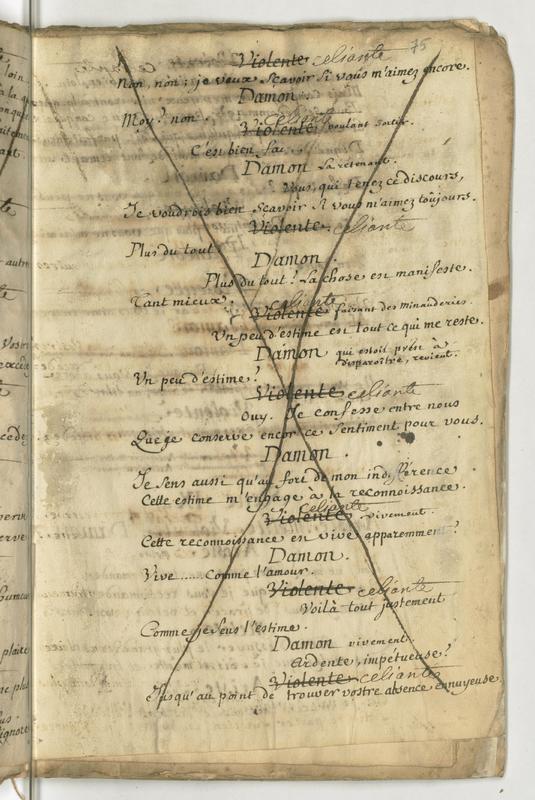 75
Violente celiante
Non, non; je veux sçavoir si vous m'aimez encore.
Damon.
Moy? non.
Violente celiante voulant sortir.
C'est bien fai...
Damon la retenant.
Vous, qui tenez ce discours,
Je voudrois bien sçavoir si vous m'aimez toûjours.
Violente. celiante
Plus du tout.
Damon
Plus du tout! la chose est manifeste.
Tant mieux.
Violente celiante faisant des minauderies.
Un peu d'estime est tout ce qui me reste.
Damon qui estoit prest à
disparoître, revient.
Un peu d'estime?
Violente celiante
Ouy. Je confesse entre nous
Que je conserve encor ce sentiment pour vous.
Damon.
Je sens aussi qu'au fort de mon indifférence
Cette estime m'engage à la reconnoissance.
Violente celiante vivement.
Cette reconnoissance est vive apparemment?
Damon.
Vive...... Comme l'amour.
Violente celiante
Voilà tout justement
Comme je sens l'estime.
Damon vivement.
Ardente, impétueuse?
Violente celiante
Jusqu'au point de trouver vostre absence ennuyeuse.